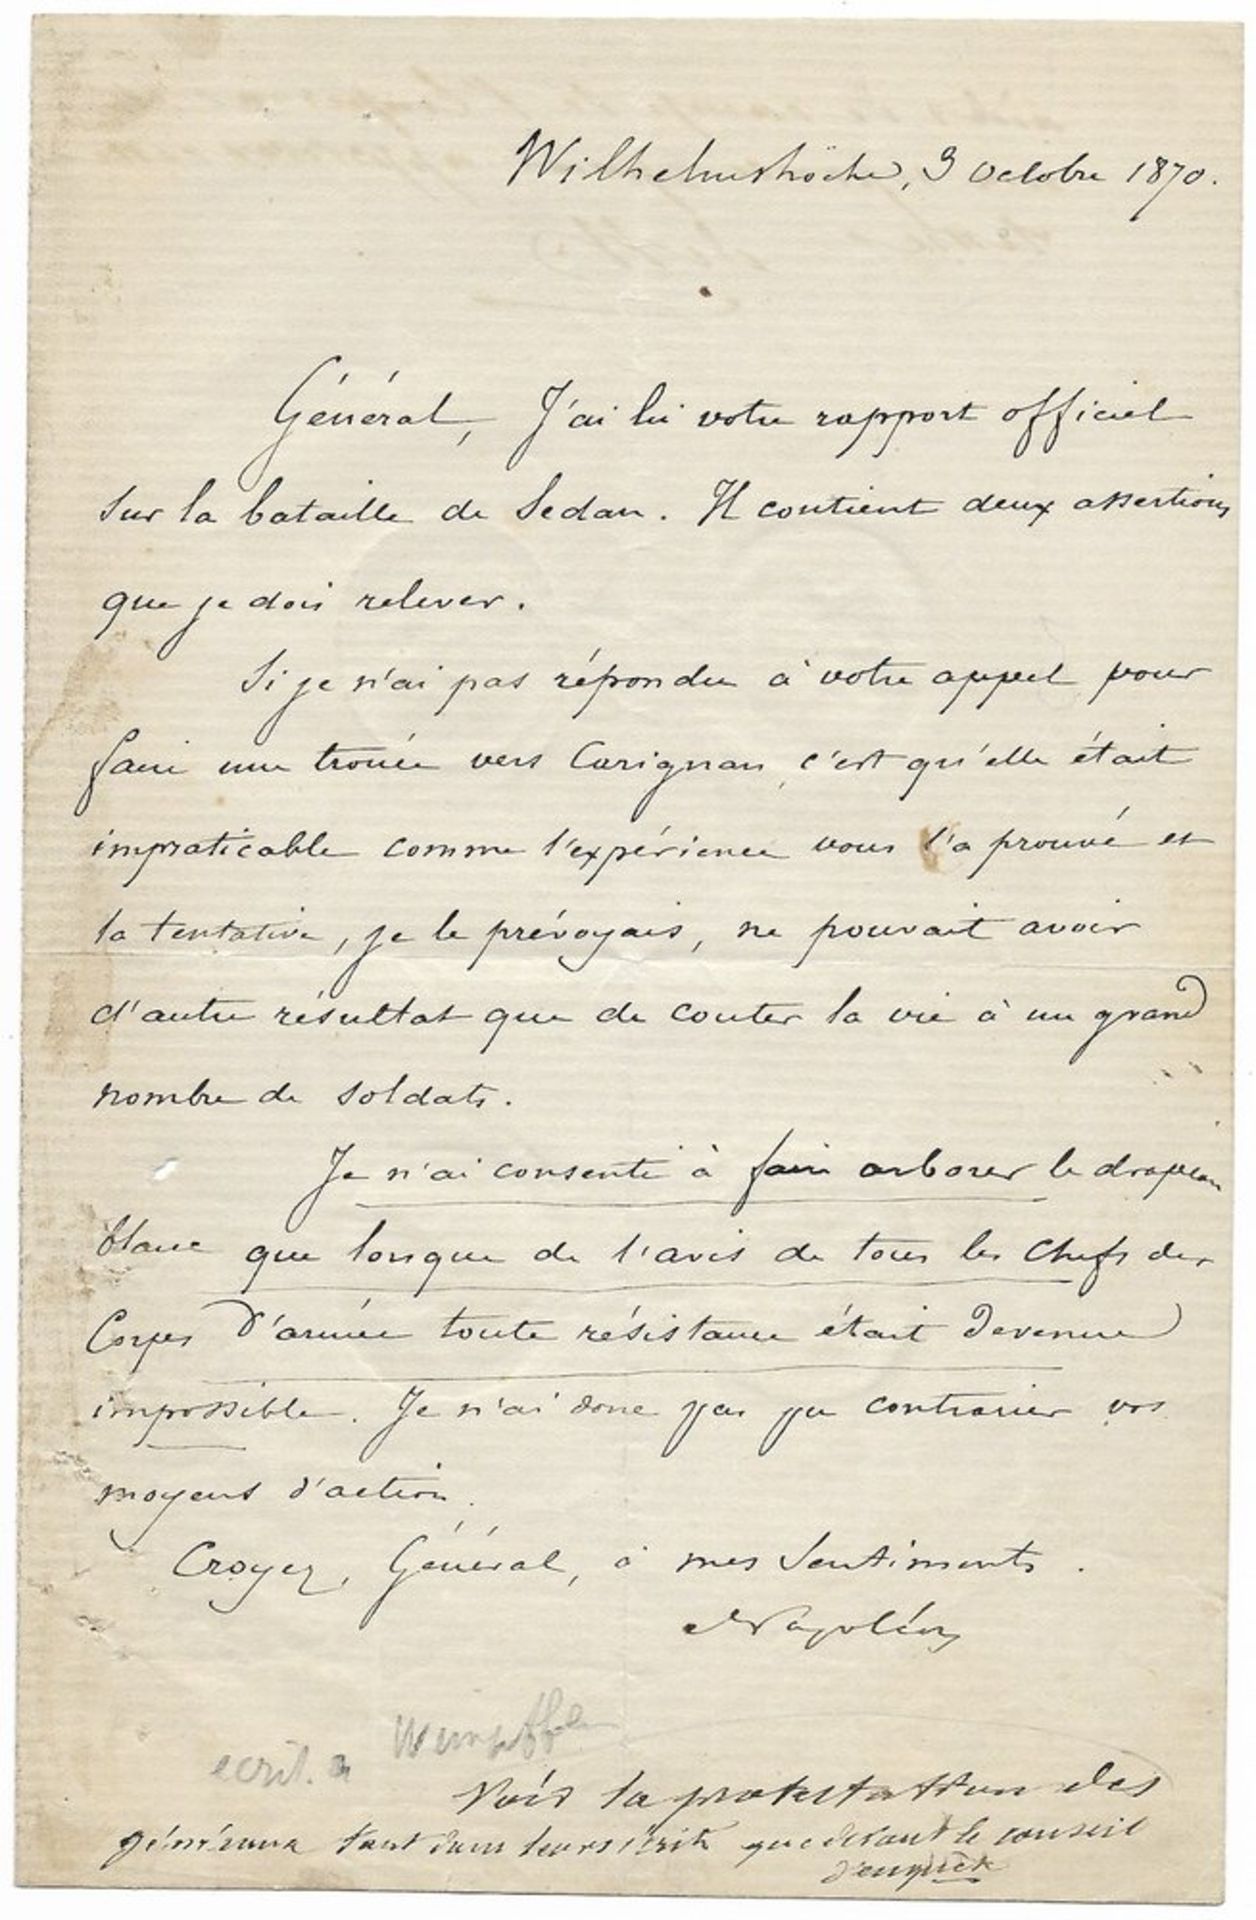 Wilhelmshöhe, 3 Octobre 1870.
Général, J'ai lu votre rapport officiel
sur la bataille de Sedan. Il contient deux assertions
que je dois relever.
Si je n'ai pas répondu à votre appel pour
faire une trouée vers Carignan, c'est qu'elle était
impraticable comme l'expérience vous l'a prouvé et
la tentative, je le prévoyais, ne pouvait avoir
d'autre résultat que de couter la vie à un grand
nombre de soldats.
Je n'ai consenti à faire arborer le drapeau
blanc que lorsque de l'avis de tous les Chefs de
Corps d'armée toute résistance était devenue
impossible. Je n'ai donc pas pu contrarier vos
moyens d'action.
Croyez, Général, à mes sentiments.
Napoléon
ecrit a Wimpffen
Voir la protestation des
généraux tant dans leurs écrits que devant le conseil
d'enquete